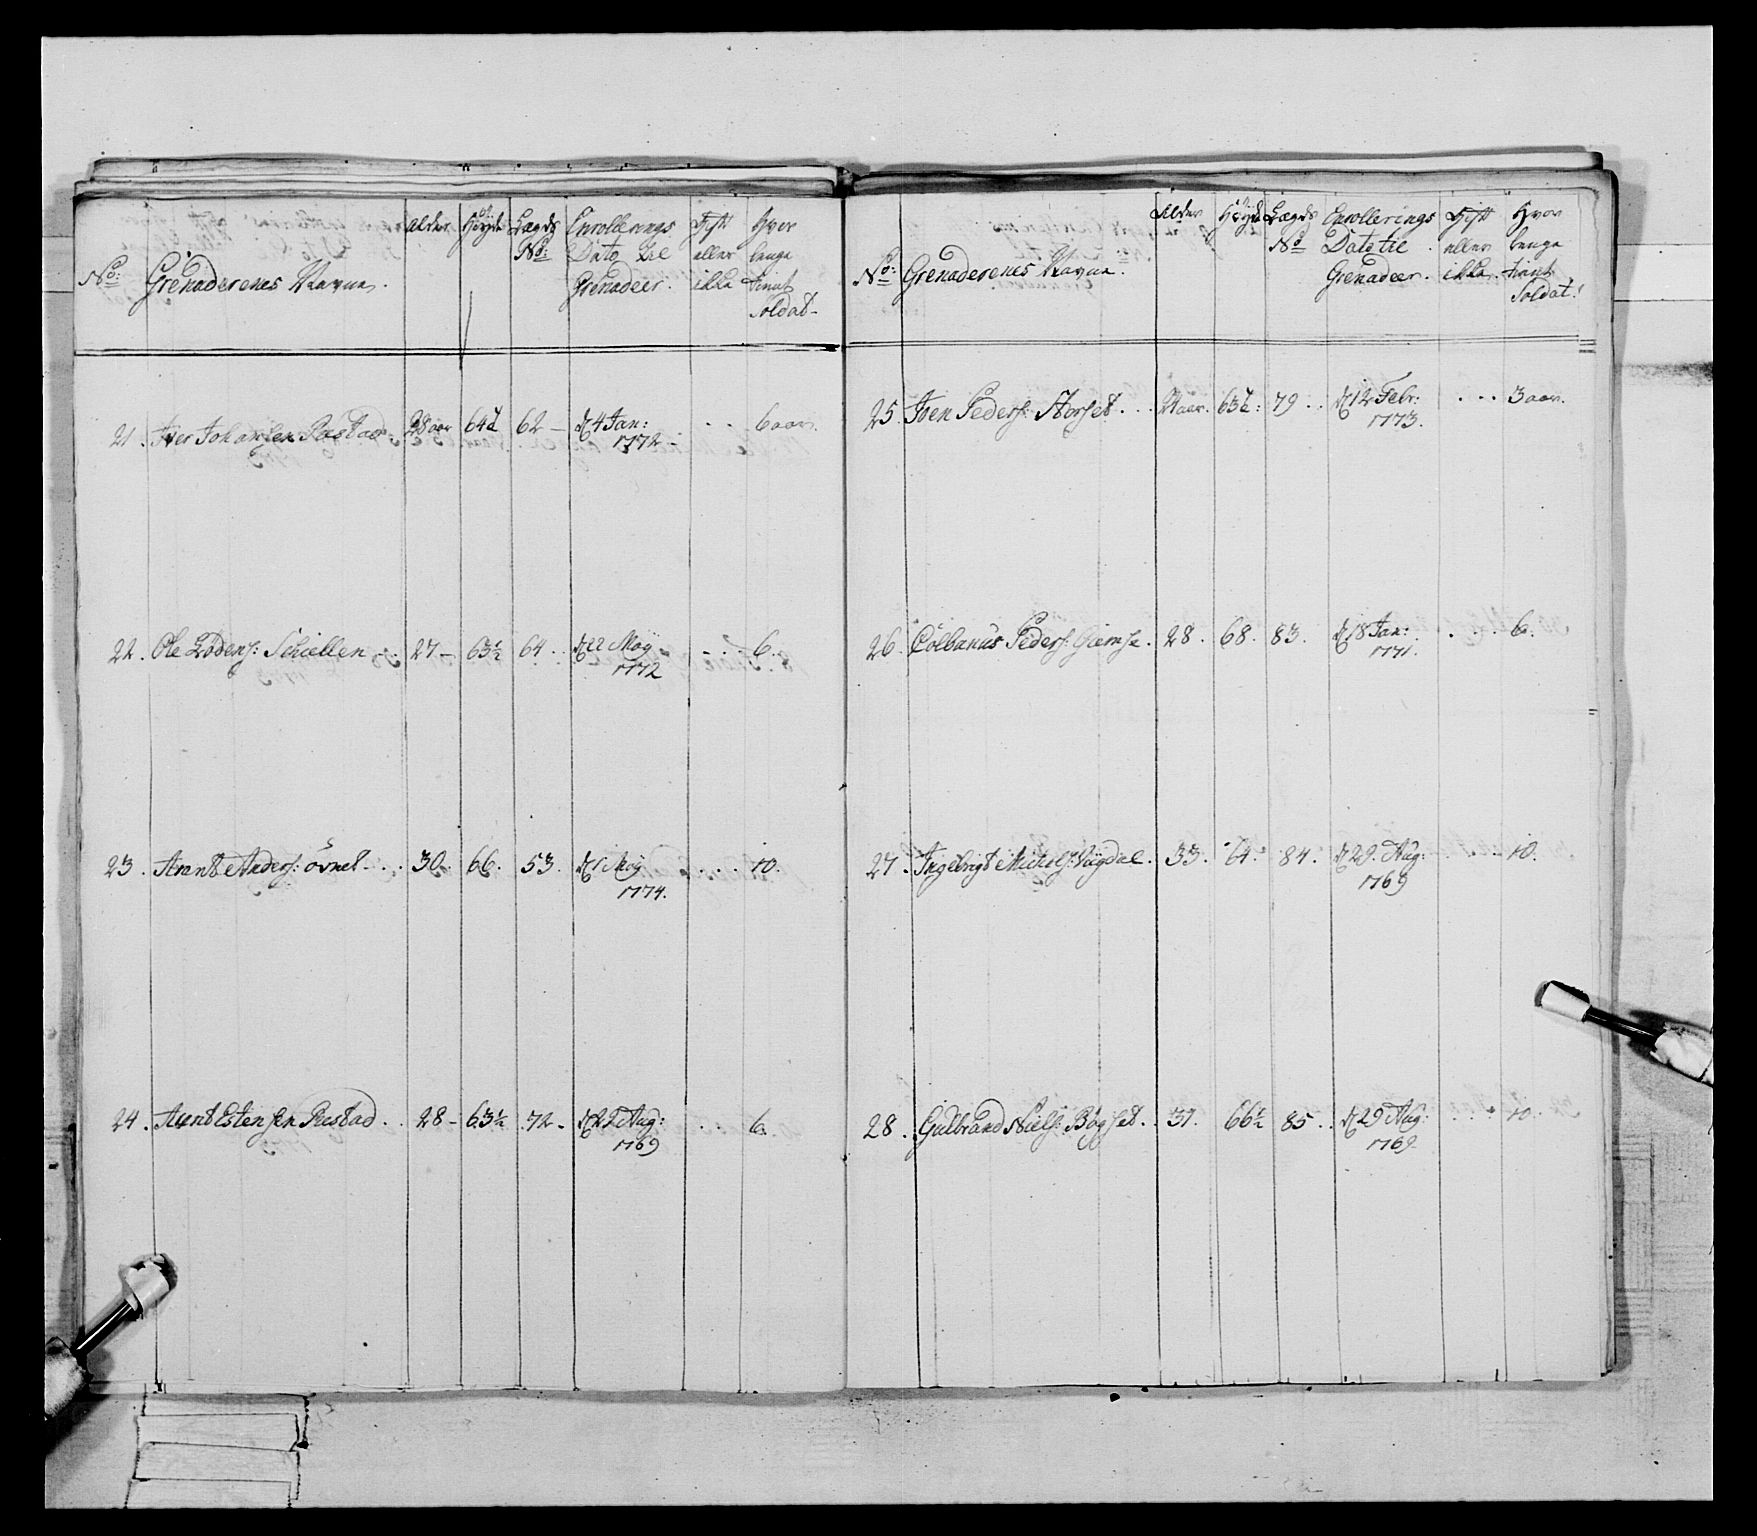 No: Grenaderenes Navne. Alder Høyde Lægds No: Enrollerings Dato til Grenadeer. Gift eller ikke Hvor lenge tient Soldat
21. Iver Johansen 28 aar 64 62 d 4 Jan: 1772 6 aar
22. Ole Schiellen 27 63½ 64 d 22 May 1772 6.
23. Arent Anders: Øvnel 30. 66. 53. d 1 May 1774. 10.
24. Arent Estensen Røstad 28 63½ 72 d 22 Aug: 1769 6.
No: Grenaderenes Navne. Alder Høyde Lægds No Enrollerings Dato til Grenadeer. Gift eller ikke. Hvor lenge tient Soldat:
25. Iven Peders: Storset 63½: 79 d 12 Febr: 1773. 3 aar.
26. Colbanus Peders: Giemse. 28. 68. 83. d 18 Jan: 1771. 6.
27. Ingebrigt Michels: Vigdal. 33. 64. 84. d 29 Aug: 1769 10.
28. Gulbrand Niels: Bøgset. 31. 66½ 85. d 29 Aug: 1769. 10.